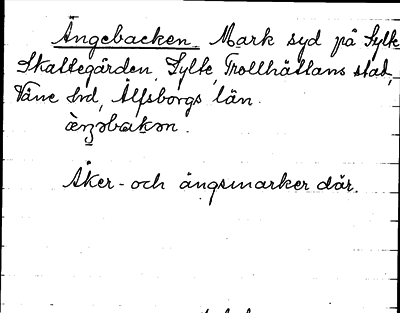 Ängebacken. Mark syd på Sylte
Skattegården, Sylte, Trollhättans stad,
Väne hd, Älfsborgs län.
Åker- och ängsmarker där.